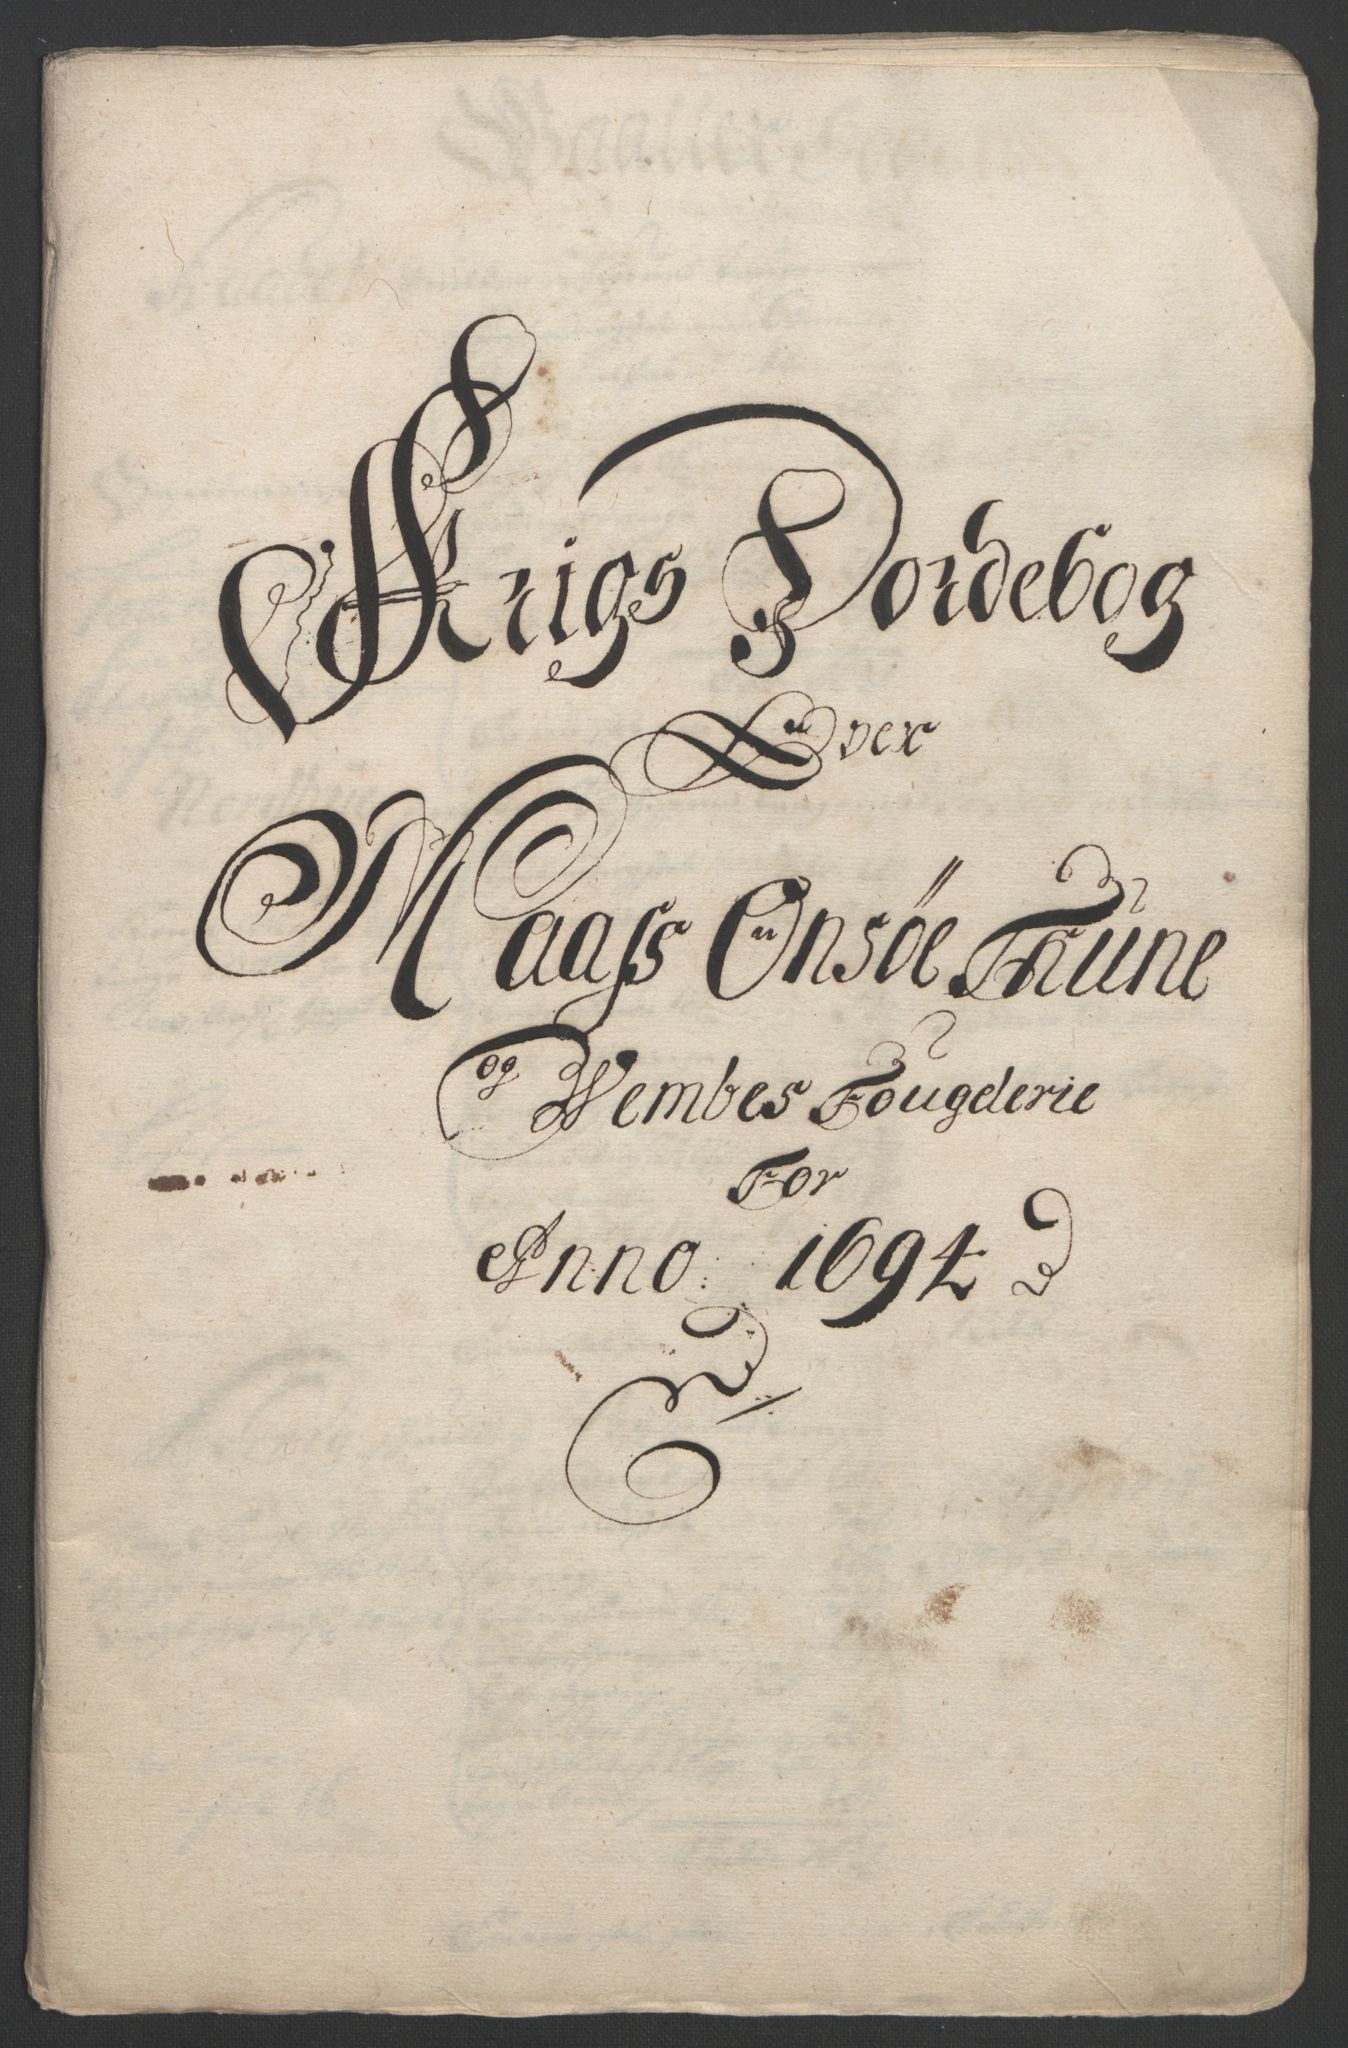 Krigs Jordebog
Ofver
Maass Onsøe Thüne
og Wembes Fougderie
For
Anno 1694